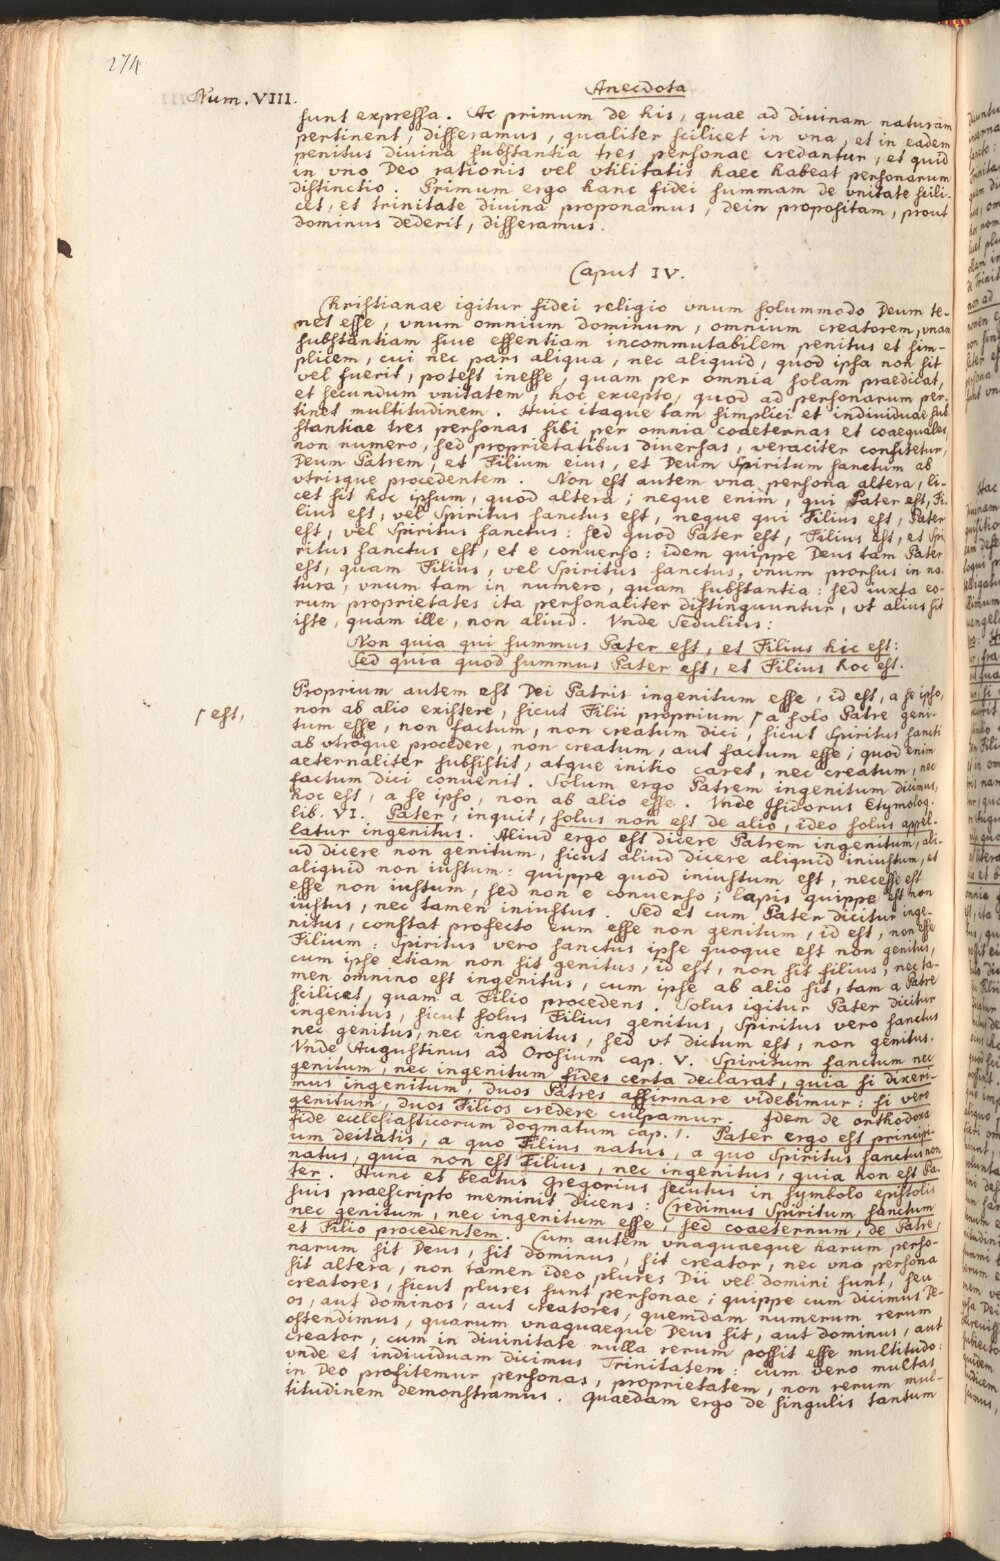 274
Num. VIII.
Anecdota
sunt expressa. Ac primum de his, quae ad divinam naturam
pertinent, disseramus, qualiter scilicet in vna, et in eadem
penitus divina substantia tres personae credantur, et quid
in vno Deo rationis vel vtilitatis haec habeat personarum
distinctio. Primum ergo hanc fidei summam de vnitate scili-
cet, et trinitate divina proponamus, dein propositam, prout
dominus dederit, disseramus.
Caput IV.
Christianae igitur fidei religio vnum solummodo Deum te-
net esse, vnum omnium dominum, omnium creatorem, vnam
substantiam siue essentiam incommutabilem penitus et sim-
plicem, cui nec pars aliqua, nec aliquid, quod ipsa non sit
vel fuerit, potest inesse, quam per omnia solam praedicat,
et secundum vnitatem, hoc excepto, quod ad personarum per-
tinet multitudinem. Huic itaque tam simplici et individuae sub
stantiae tres personas sibi per omnia coaeternas et coaequales,
non numero, sed proprietatibus diversas, veraciter confitetur,
Deum Patrem, et Filium eius, et Deum Spiritum sanctum ab
vtrisque procedentem. Non est autem vna persona altera, li-
cet sit hoc ipsum, quod altera; neque enim, qui Pater est, Fi-
lius est, vel Spiritus sanctus est, neque qui Filius est, Pater
est, vel Spiritus sanctus: sed quod Pater est, Filius est, et Spi
ritus sanctus est, et e converso: idem quippe Deus tam Pater
est, quam Filius, vel Spiritus sanctus, vnum prorsus in na
tura, vnum tam in numero, quam substantia: sed iuxta eo-
rum proprietates ita personaliter distinguuntur, vt alius sit
iste, quam ille, non aliud. Vnde Sedulius:
Non quia qui summus Pater est, et Filius hic est:
Sed quia quod summus Pater est, et Filius hoc est.
Proprium autem est Dei Patris ingenitum esse, id est, a se ipso,
non ab alio existere, sicut Filii proprium ſ a solo Patre geni-
ſ est,
tum esse, non factum, non creatum dici, sicut Spiritus sancti
ab vtroque procedere, non creatum, aut factum esse; quod enim
aeternaliter subsistit, atque initio caret, nec creatum, nec
factum dici convenit. Solum ergo Patrem ingenitum dicimus,
hoc est, a se ipso, non ab alio esse. Vnde Isidorus Etymolog.
lib. VI. Pater, inquit, solus non est de alio, ideo solus appel-
latur ingenitus. Aliud ergo est dicere Patrem ingenitum, ali-
ud dicere non genitum, sicut aliud dicere aliquid iniustum, et
aliquid non iustum: quippe quod iniustum est, necesse est
esse non iustum, sed non e converso; lapis quippe est non
iustus, nec tamen iniustus. Sed et cum Pater dicitur inge-
nitus, constat profecto eum esse non genitum, id est, non esse
Filium: Spiritus vero sanctus ipse quoque est non genitus,
cum ipse etiam non sit genitus, id est, non sit filius, nec ta-
men omnino est ingenitus, cum ipse ab alio sit, tam a Patre
scilicet, quam a Filio procedens. Solus igitur Pater dicitur
ingenitus, sicut solus Filius genitus, Spiritus vero sanctus
nec genitus, nec ingenitus, sed vt dictum est, non genitus.
Vnde Augustinus ad Orosium cap. V. Spiritum sanctum nec
genitum, nec ingenitum fides certa declarat, quia si dixeri-
mus ingenitum, duos Patres affirmare videbimur: si vero
genitum, duos Filios credere culpamur. Idem de orthodoxa
fide ecclesiasticorum dogmatum cap. 1. Pater ergo est principi-
um deitatis, a quo Filius natus, a quo Spiritus sanctus non
natus, quia non est Filius, nec ingenitus, quia non est Pa-
ter. Hunc et beatus Gregorius secutus in symbolo epistolis
suis praescripto meminit dicens: Credimus Spiritum sanctum
nec genitum, nec ingenitum esse, sed coaeternum, de Patre,
et Filio procedentem. Cum autem vnaquaeque harum perso-
narum sit Deus, sit dominus, sit creator, nec vna persona
sit altera, non tamen ideo plures Dii vel domini sunt, seu
creatores, sicut plures sunt personae; quippe cum dicimus De-
os, aut dominos, aut creatores, quemdam numerum rerum
ostendimus, quarum vnaquaeque Deus sit, aut dominus, aut
creator, cum in divinitate nulla rerum possit esse multitudo:
vnde et individuam dicimus Trinitatem: cum vero multas
in Deo profitemur personas, proprietatem, non rerum mul-
titudinem demonstramus. Quaedam ergo de singulis tantum